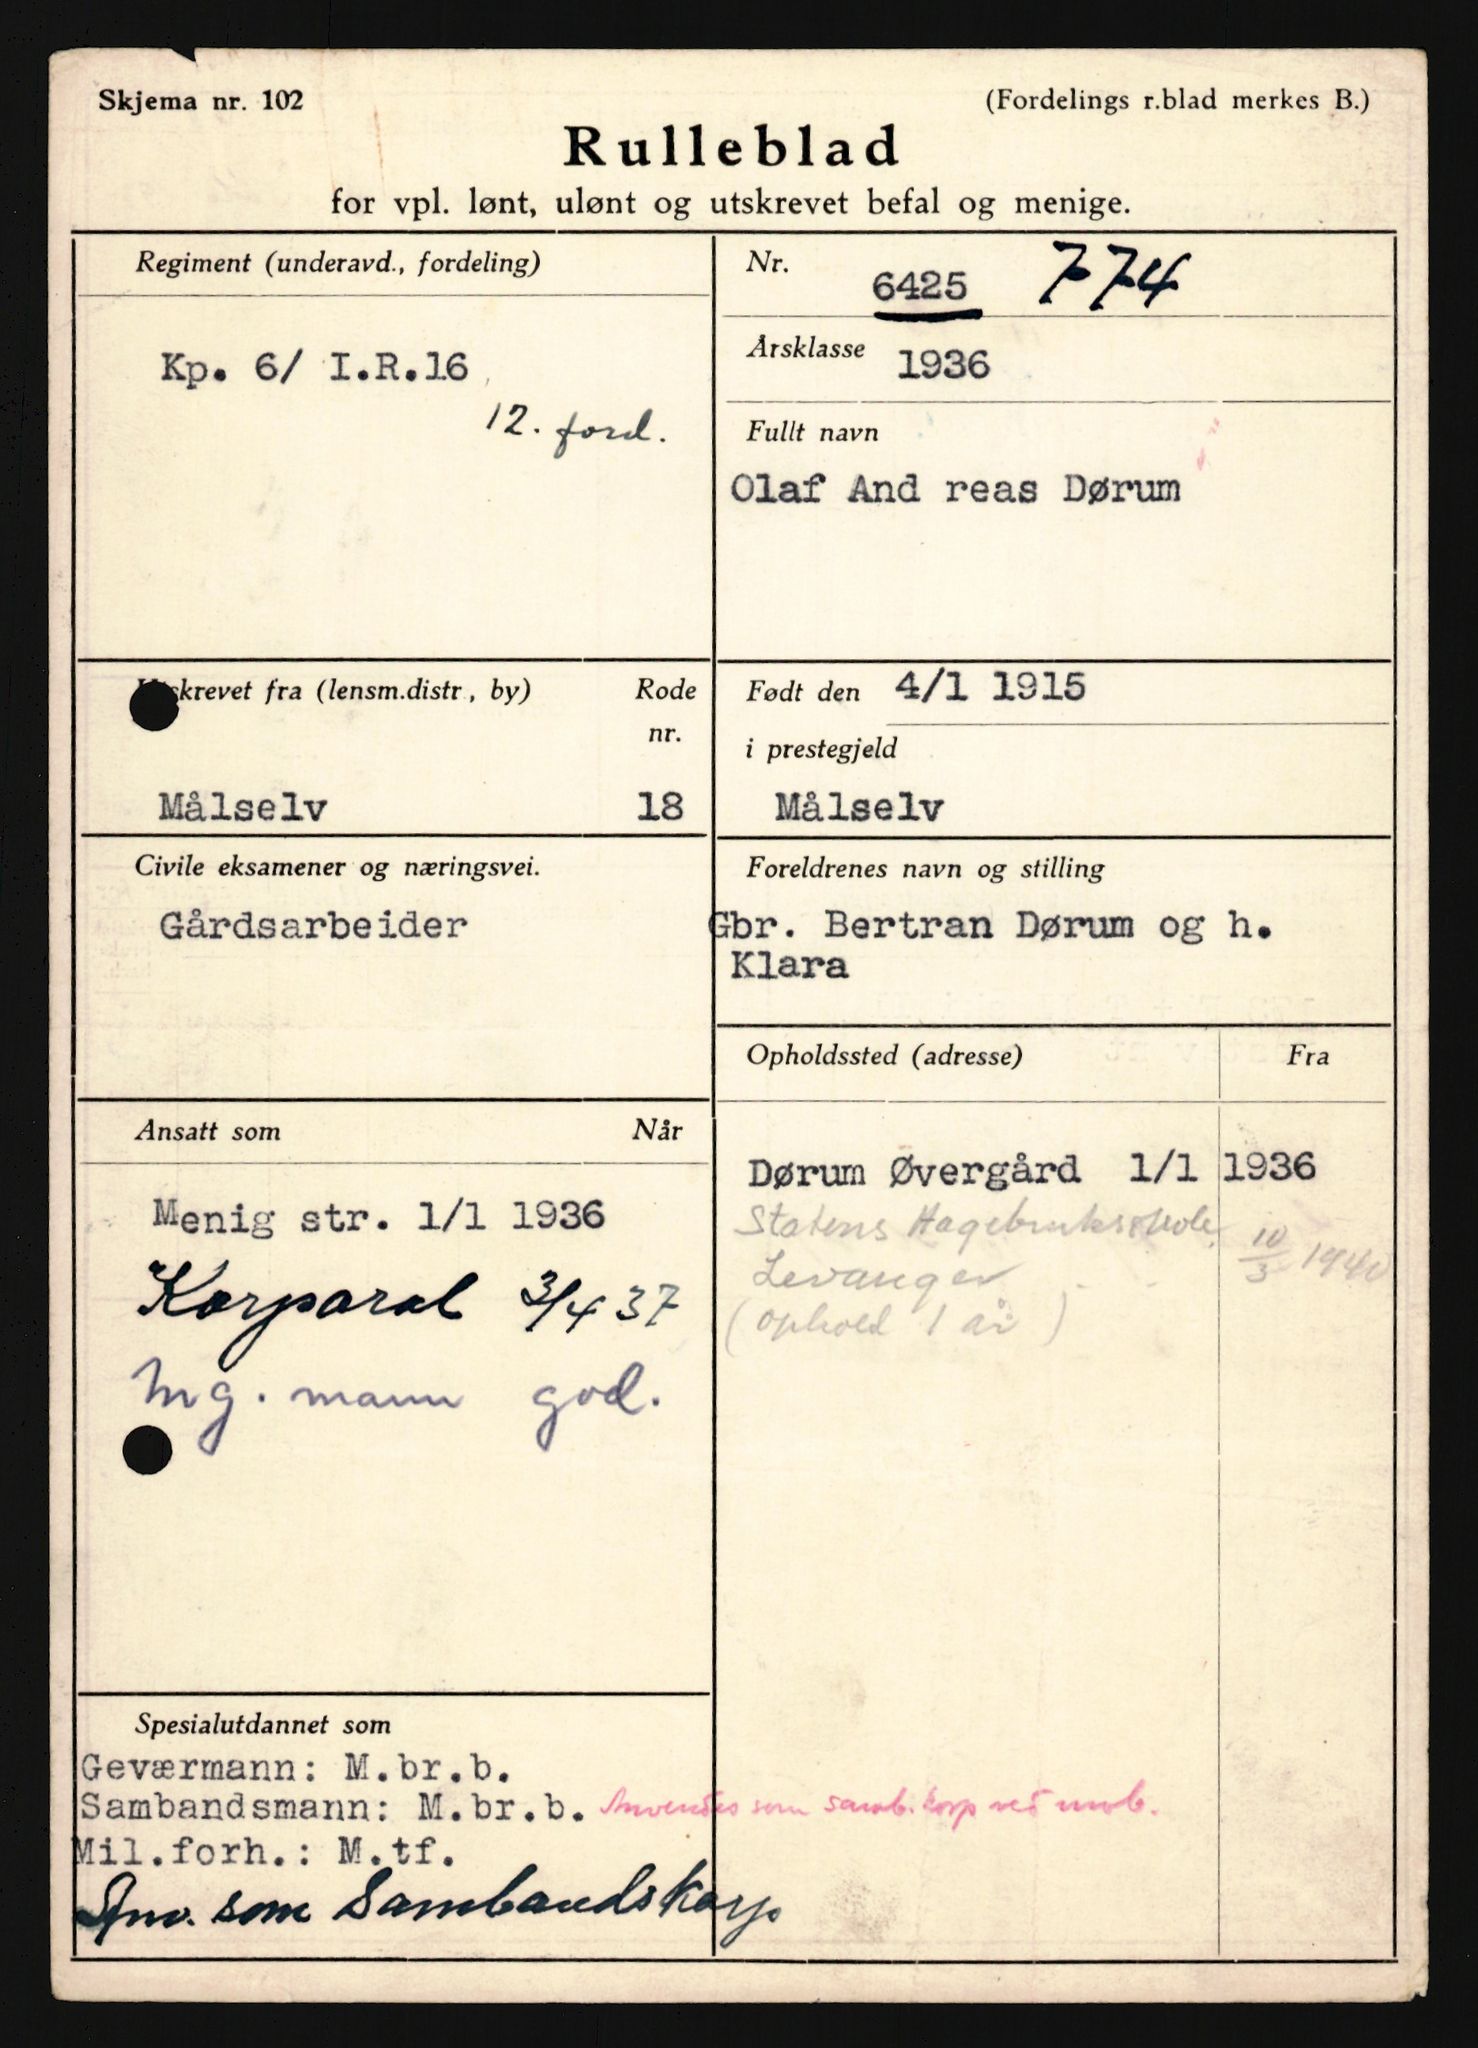 Skjema nr. 102
(Fordelings r.blad merkes B.)
Rulleblad
for vpl. lønt, ulønt og utskrevet befal og menige.
Regiment (underavd., fordeling)
Kp. 6/ I.R.16
12. ford.
Nr.
6425 774
Årsklasse
1936
Fullt navn
Olaf And reas Dørum
skrevet fra (lensm.distr, by)
Rode
nr.
Målselv 18
Født den 4/1 1915
i prestegjeld
Målselv
Civile eksamener og næringsvei.
Gårdsarbeider
Foreldrenes navn og stilling
Gbr. Bertran Dørum og h.
Klara
Ansatt som Når
Menig str. 1/1 1936
Korporal 3/4 37
Mg. mann god.
Opholdssted (adresse) Fra
Dørum Øvergård 1/1 1936
Statens Hagebruksskole
Levanger 10/3 1940
(ophold 1 år)
Spesialutdannet som
Geværmann: M.br.b.
Sambandsmann: M.br.b. Anvendes som samb. korp ved mob.
Mil.forh.: M.tf.
Anv. som Sambandskorp